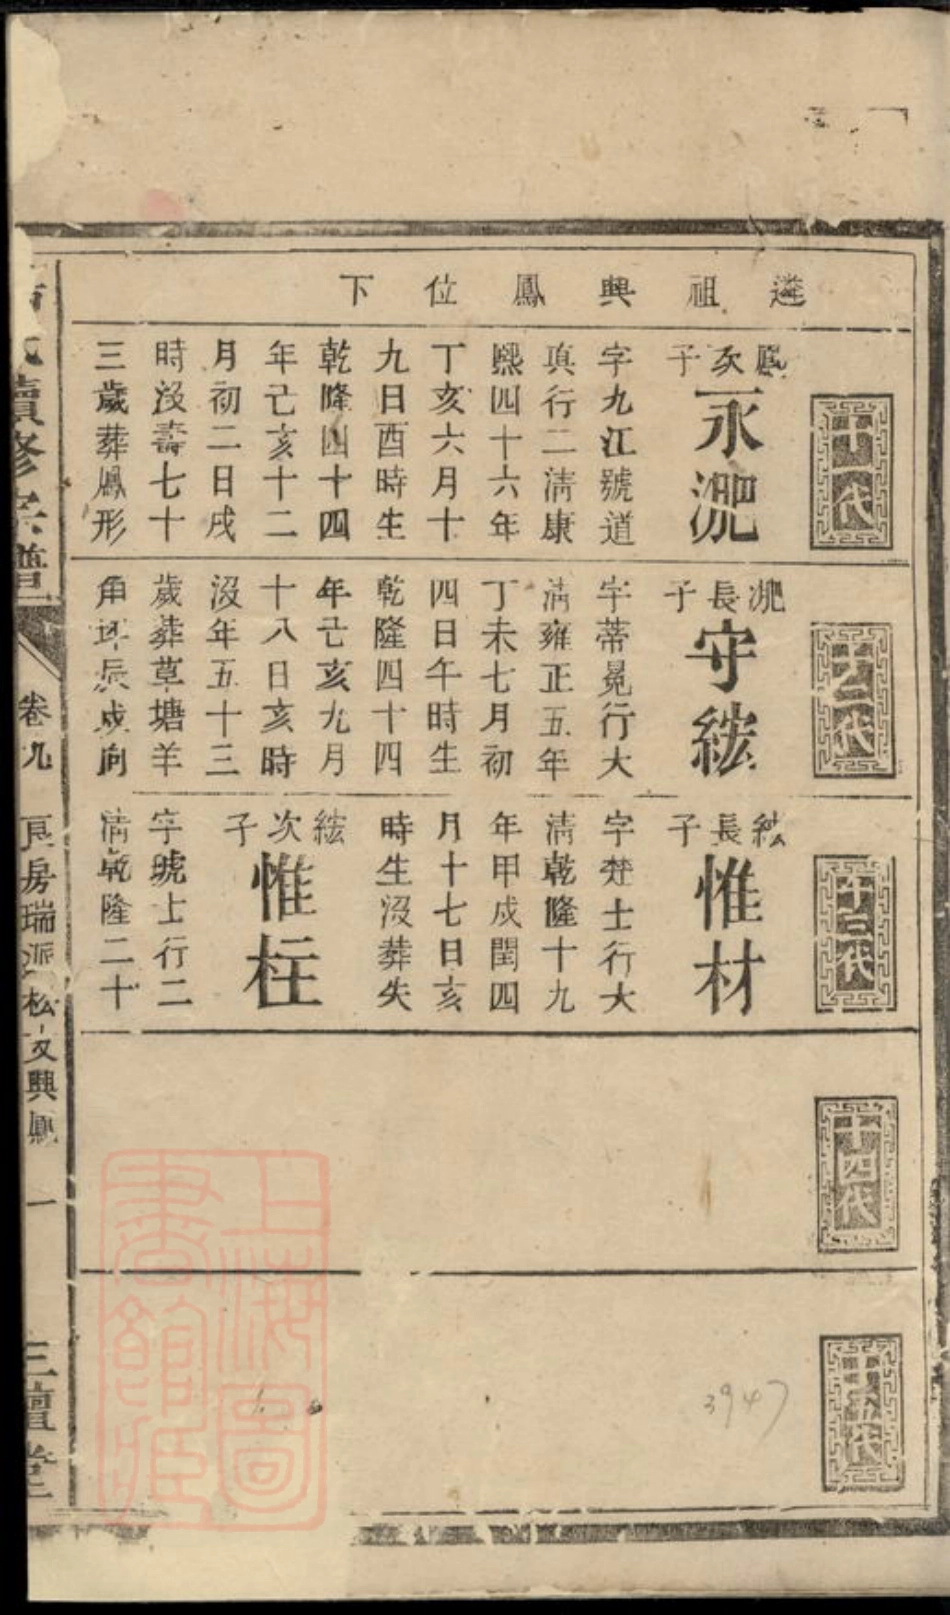 遴祖興鳳位下
十一代
鳳次子
永淝
字九江號道
真行二清康
熙四十六年
丁亥六月十
九日酉時生
乾隆四十四
年己亥十二
月初二日戌
時沒壽七十
三歲葬鳳形
十二代
淝長子
守綋
字蒂冕行大
清雍正五年
丁未七月初
四日午時生
乾隆四十四
年己亥九月
十八日亥時
沒年五十三
歲葬草塘羊
角坪辰戌向
十三代
綋長子
惟材
字楚士行大
清乾隆十九
年甲戍閏四
月十七日亥
時生沒葬失
綋次子
惟柱
字號上行二
清乾隆二十
十四代
十五代
3947
氏續修宗譜
卷九
房瑞派松文興鳳
一
三亶堂
上海圖書館藏